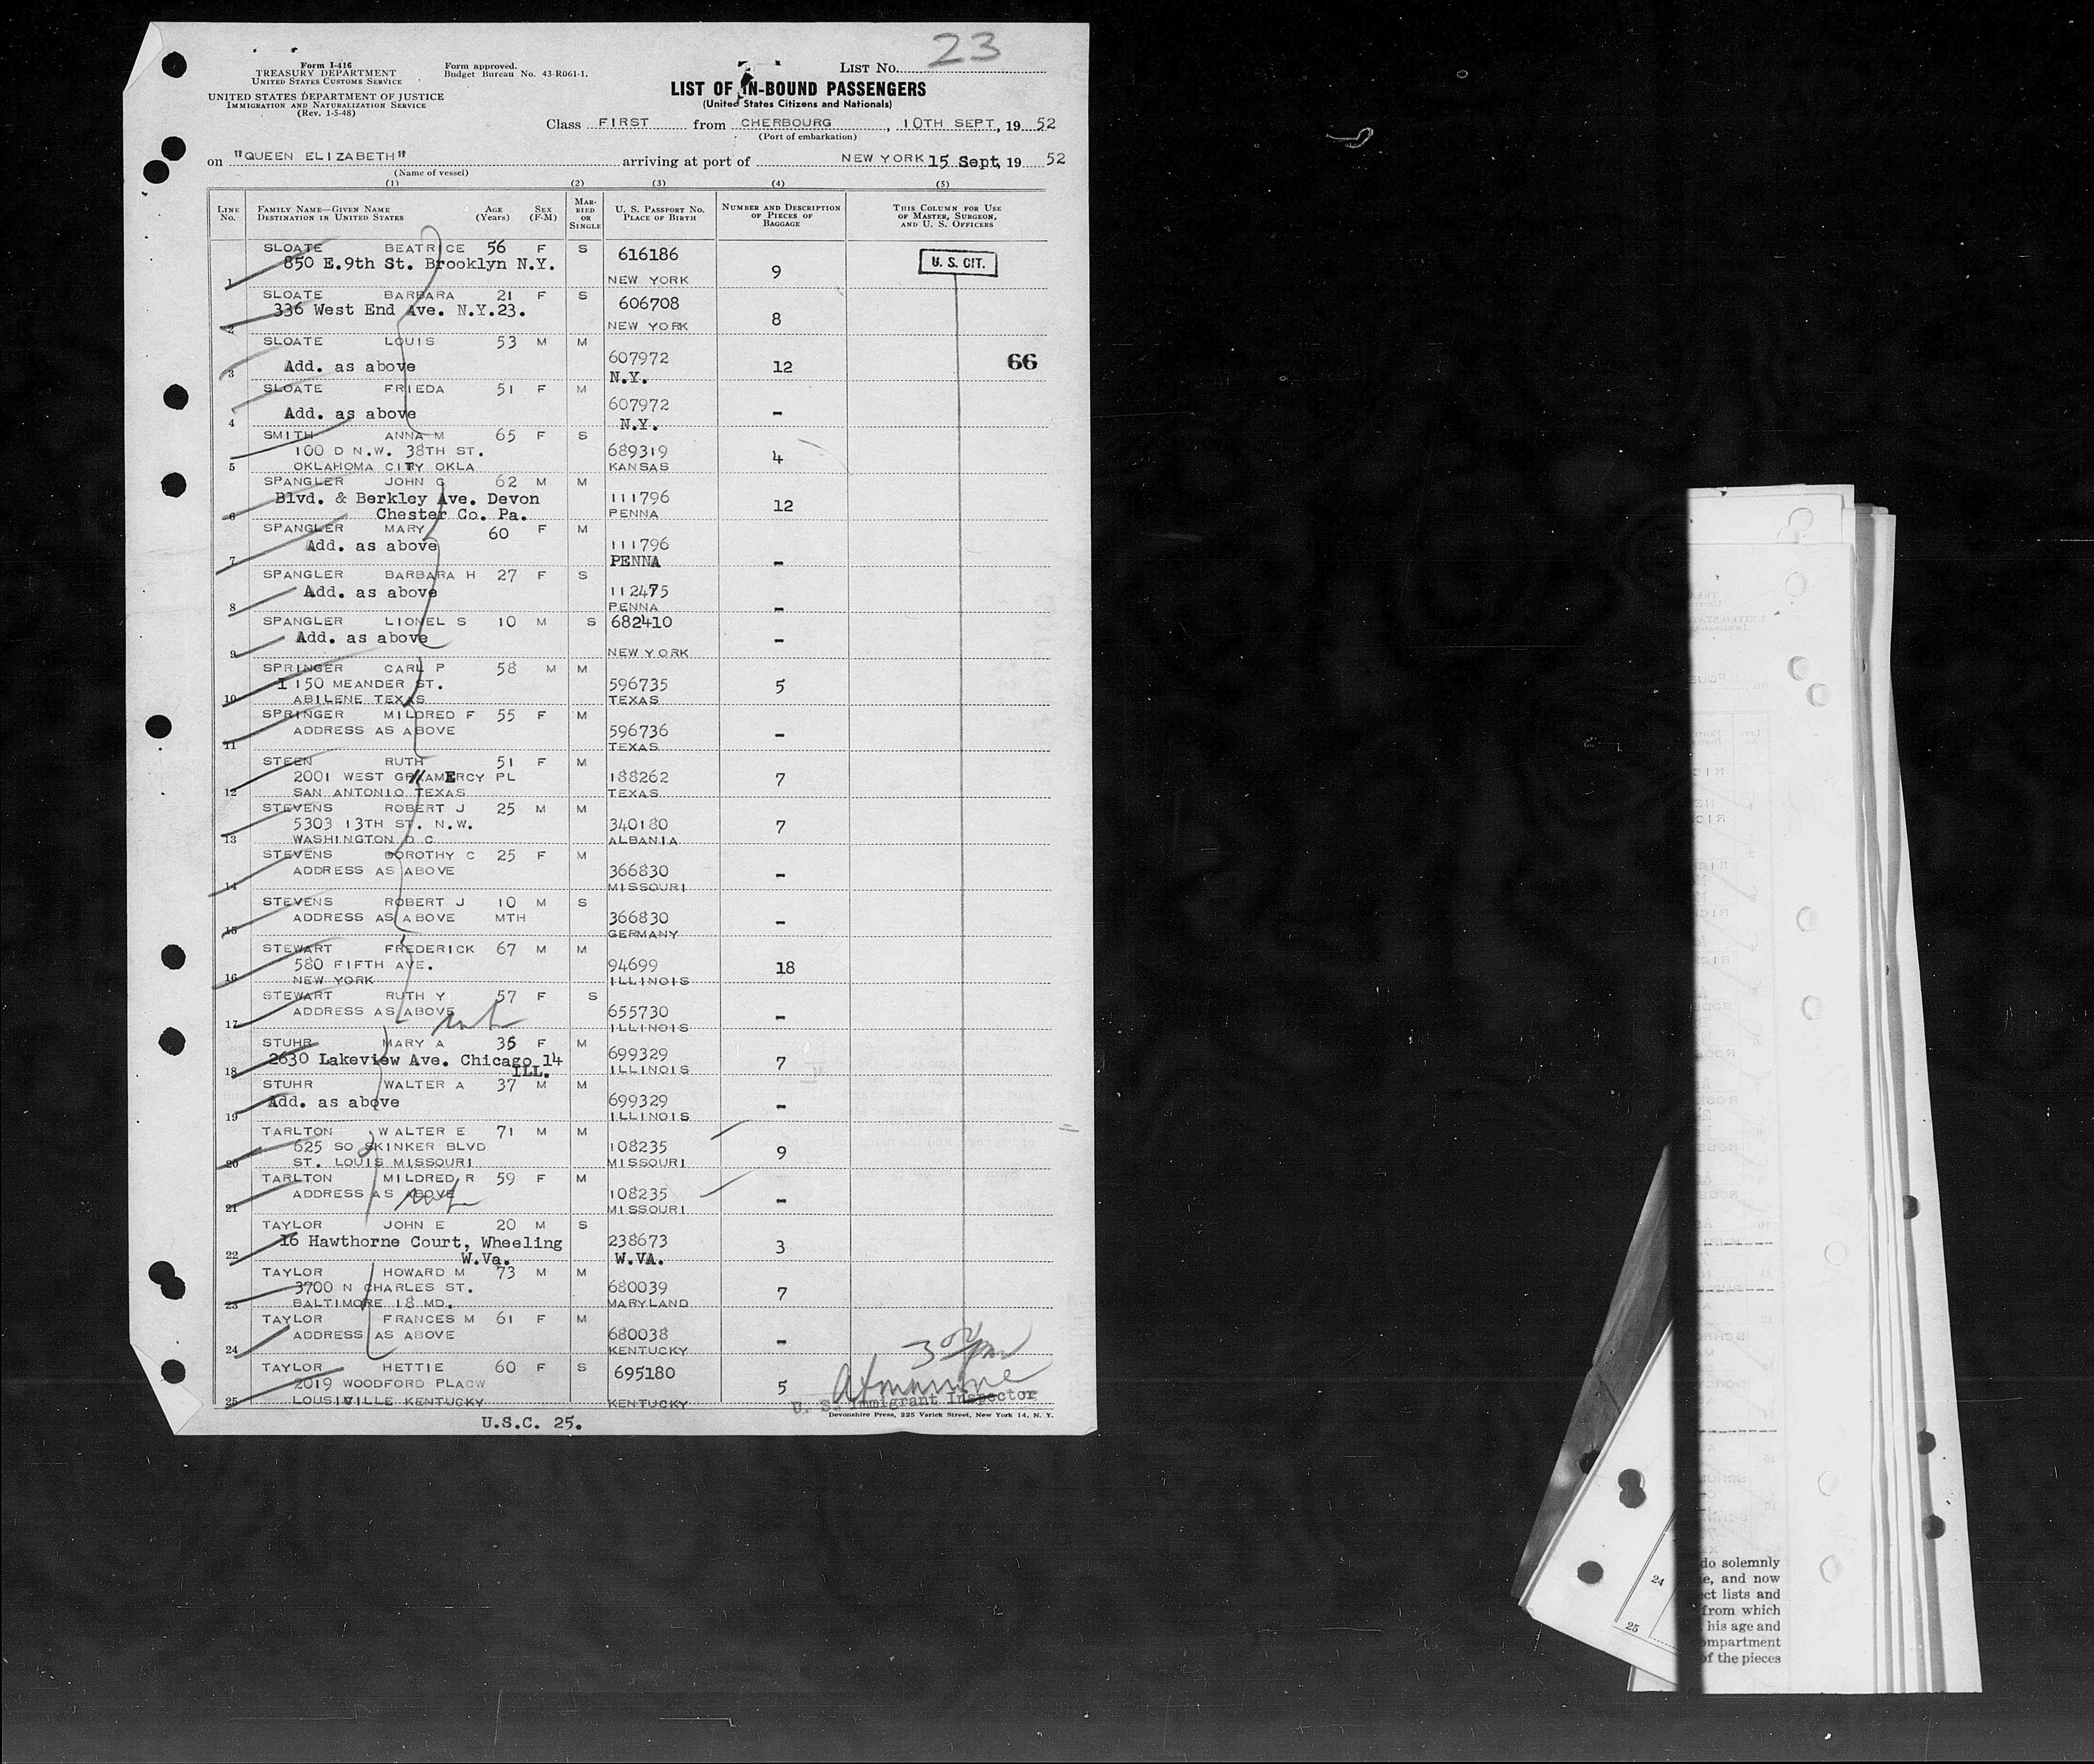 23
Form I-416
TREASURY DEPARTMENT
UNITED STATES CUSTOMS SERVICE
UNITED STATES DEPARTMENT OF JUSTICE
IMMIGRATION AND NATURALIZATION SERVICE
(Rev. 1-5-48)
Form approved.
Budget Bureau No. 43-R061-1.
LIST NO.
LIST OF IN-BOUND PASSENGERS
(United States Citizens and Nationals)
Class FIRST from CHERBOURG, 10TH SEPT, 19 52
(Port of embarkation)
on "QUEEN ELIZABETH" arriving at port of NEW YORK 15 Sept, 19 52
(Name of vessel)
(1) (2) (3) (4) (5)
LINE NO. FAMILY NAME—GIVEN NAME DESTINATION IN UNITED STATES AGE (Years) SEX (F-M) MARRIED OR SINGLE U. S. PASSPORT NO. PLACE OF BIRTH NUMBER AND DESCRIPTION OF PIECES OF BAGGAGE THIS COLUMN FOR USE OF MASTER, SURGEON, AND U. S. OFFICERS
SLOATE BEATRICE 56 F S 616186
850 E.9th St. Brooklyn N.Y. U. S. CIT.
1 NEW YORK 9
SLOATE BARBARA 21 F S 606708
336 West End Ave. N.Y.23.
2 NEW YORK 8
SLOATE LOUIS 53 M M 607972
3 Add. as above N.Y. 12 66
SLOATE FRIEDA 51 F M 607972
4 Add. as above N.Y. -
SMITH ANNA M 65 F S 689319
100 D N.W. 38TH ST.
5 OKLAHOMA CITY OKLA KANSAS 4
SPANGLER JOHN G 62 M M 111796
Blvd. & Berkley Ave. Devon
6 Chester Co. Pa. PENNA 12
SPANGLER MARY 60 F M 111796
Add. as above
7 PENNA -
SPANGLER BARBARA H 27 F S 112475
Add. as above
8 PENNA -
SPANGLER LIONEL S 10 M S 682410
Add. as above
9 NEW YORK -
SPRINGER CARL P 58 M M 596735
1150 MEANDER ST.
10 ABILENE TEXAS TEXAS 5
SPRINGER MILDRED F 55 F M 596736
ADDRESS AS ABOVE
11 TEXAS -
STEEN RUTH 51 F M 188262
2001 WEST GRAMERCY PL
12 SAN ANTONIO TEXAS TEXAS 7
STEVENS ROBERT J 25 M M 340180
5303 13TH ST. N.W.
13 WASHINGTON D C ALBANIA 7
STEVENS DOROTHY C 25 F M 366830
ADDRESS AS ABOVE
14 MISSOURI -
STEVENS ROBERT J 10 M S 366830
ADDRESS AS ABOVE MTH
15 GERMANY -
STEWART FREDERICK 67 M M 94699
580 FIFTH AVE.
16 NEW YORK ILLINOIS 18
STEWART RUTH Y 57 F S 655730
ADDRESS AS ABOVE
17 ILLINOIS -
STUHR MARY A 35 F M 699329
2630 Lakeview Ave. Chicago 14
18 ILL. ILLINOIS 7
STUHR WALTER A 37 M M 699329
Add. as above
19 ILLINOIS -
TARLTON WALTER E 71 M M 108235
625 SO SKINKER BLVD
20 ST. LOUIS MISSOURI MISSOURI 9
TARLTON MILDRED R 59 F M 108235
ADDRESS AS ABOVE
21 MISSOURI -
TAYLOR JOHN E 20 M S 238673
16 Hawthorne Court, Wheeling
22 W.Va. W.VA. 3
TAYLOR HOWARD M 73 M M 680039
3700 N CHARLES ST.
23 BALTIMORE 18 MD. MARYLAND 7
TAYLOR FRANCES M 61 F M 680038
ADDRESS AS ABOVE
24 KENTUCKY -
TAYLOR HETTIE 60 F S 695180
2019 WOODFORD PLACW
25 LOUISVILLE KENTUCKY KENTUCKY 5
U. S. Immigrant Inspector
Devonshire Press, 225 Varick Street, New York 14, N. Y.
U.S.C. 25.
24
25
do solemnly
e, and now
ct lists and
from which
his age and
ompartment
of the pieces